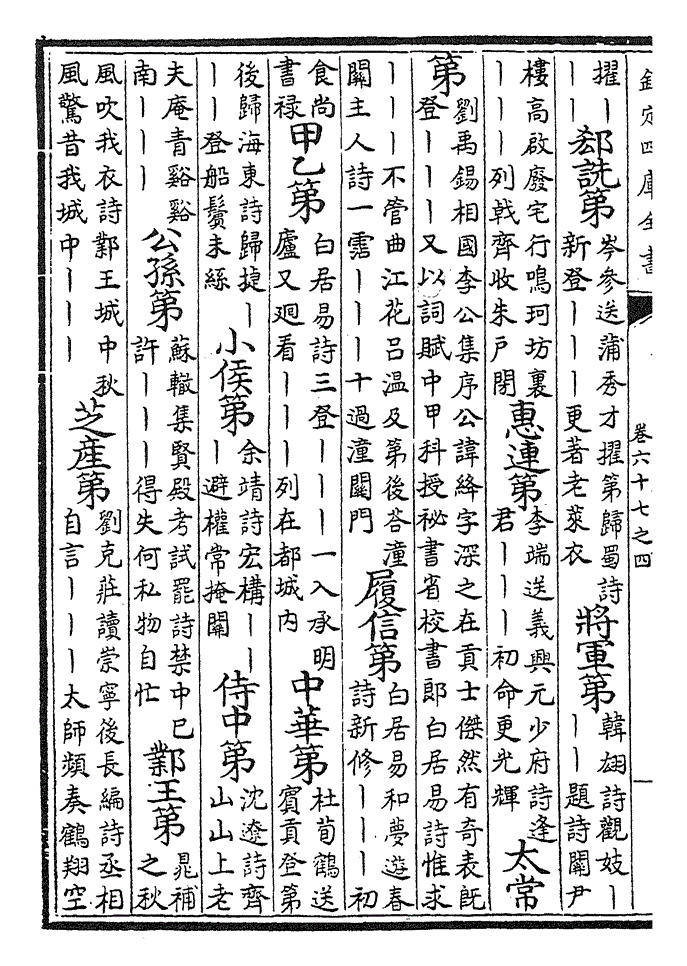 欽定四庫全書 卷六十七之四
擢丨
丨丨
郄詵第
岑參送蒲秀才擢第歸蜀詩
新登丨丨丨更著老萊衣
將軍第
韓翃詩觀妓丨
丨丨題詩關尹
樓高啟廢宅行鳴珂坊裏
丨丨丨列戟齊收朱戸閉
惠連第
李端送義興元少府詩逢
君丨丨丨初命更光輝
太常
第
劉禹錫相國李公集序公諱絳字深之在貢士傑然有奇表既
登丨丨丨又以詞賦中甲科授祕書省校書郎白居易詩惟求
丨丨丨不管曲江花呂温及第後答潼
關主人詩一霑丨丨丨十過潼關門
履信第
白居易和夢遊春
詩新修丨丨丨初
食尚
書禄
甲乙第
白居易詩三登丨丨丨一入承明
廬又迴看丨丨丨列在都城内
中華第
杜荀鶴送
賓貢登第
後歸海東詩歸捷丨
丨丨登船鬢未絲
小侯第
余靖詩宏構丨丨
丨避權常掩關
侍中第
沈遼詩齊
山山上老
夫庵青谿谿
南丨丨丨
公孫第
蘇轍集賢殿考試罷詩禁中已
許丨丨丨得失何私物自忙
鄴王第
晁補
之秋
風吹我衣詩鄴王城中秋
風驚昔我城中丨丨丨
芝産第
劉克莊讀崇寧後長編詩丞相
自言丨丨丨太師頻奏鶴翔空